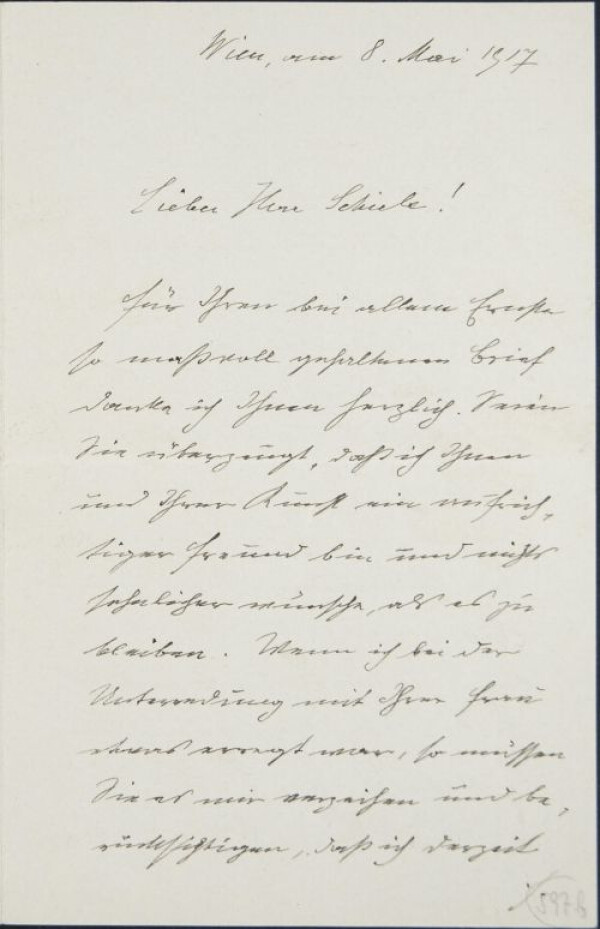 Wien, am 8. Mai 1917
Lieber Herr Schiele!
Für Ihren bei allem Ernste
so maßvoll gehaltenen Brief
danke ich Ihnen herzlich. Seien
Sie überzeugt, daß ich Ihnen
und Ihrer Kunst ein aufrich-
tiger Freund bin und nichts
sehnlicher wünsche, als es zu
bleiben. Wenn ich bei der
Unterredung mit Ihrer Frau
etwas erregt war, so müssen
Sie es mir verzeihen und be-
rücksichtigen, daß ich derzeit